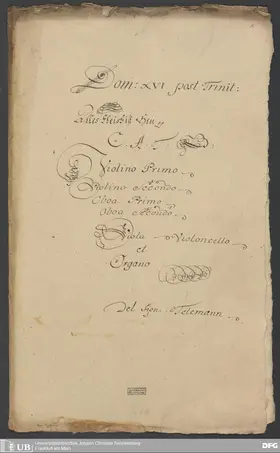 Dom: XVI post Trinit:
Alles Fleisch ist Heu
C. A. T.
Violino Primo
Violino Secondo
Oboa Primo
Oboa Secondo
Viola Violoncello
et
Organo
Del Sign: Telemann
UB
Universitätsbibliothek Johann Christian Senckenberg
Frankfurt am Main
DFG